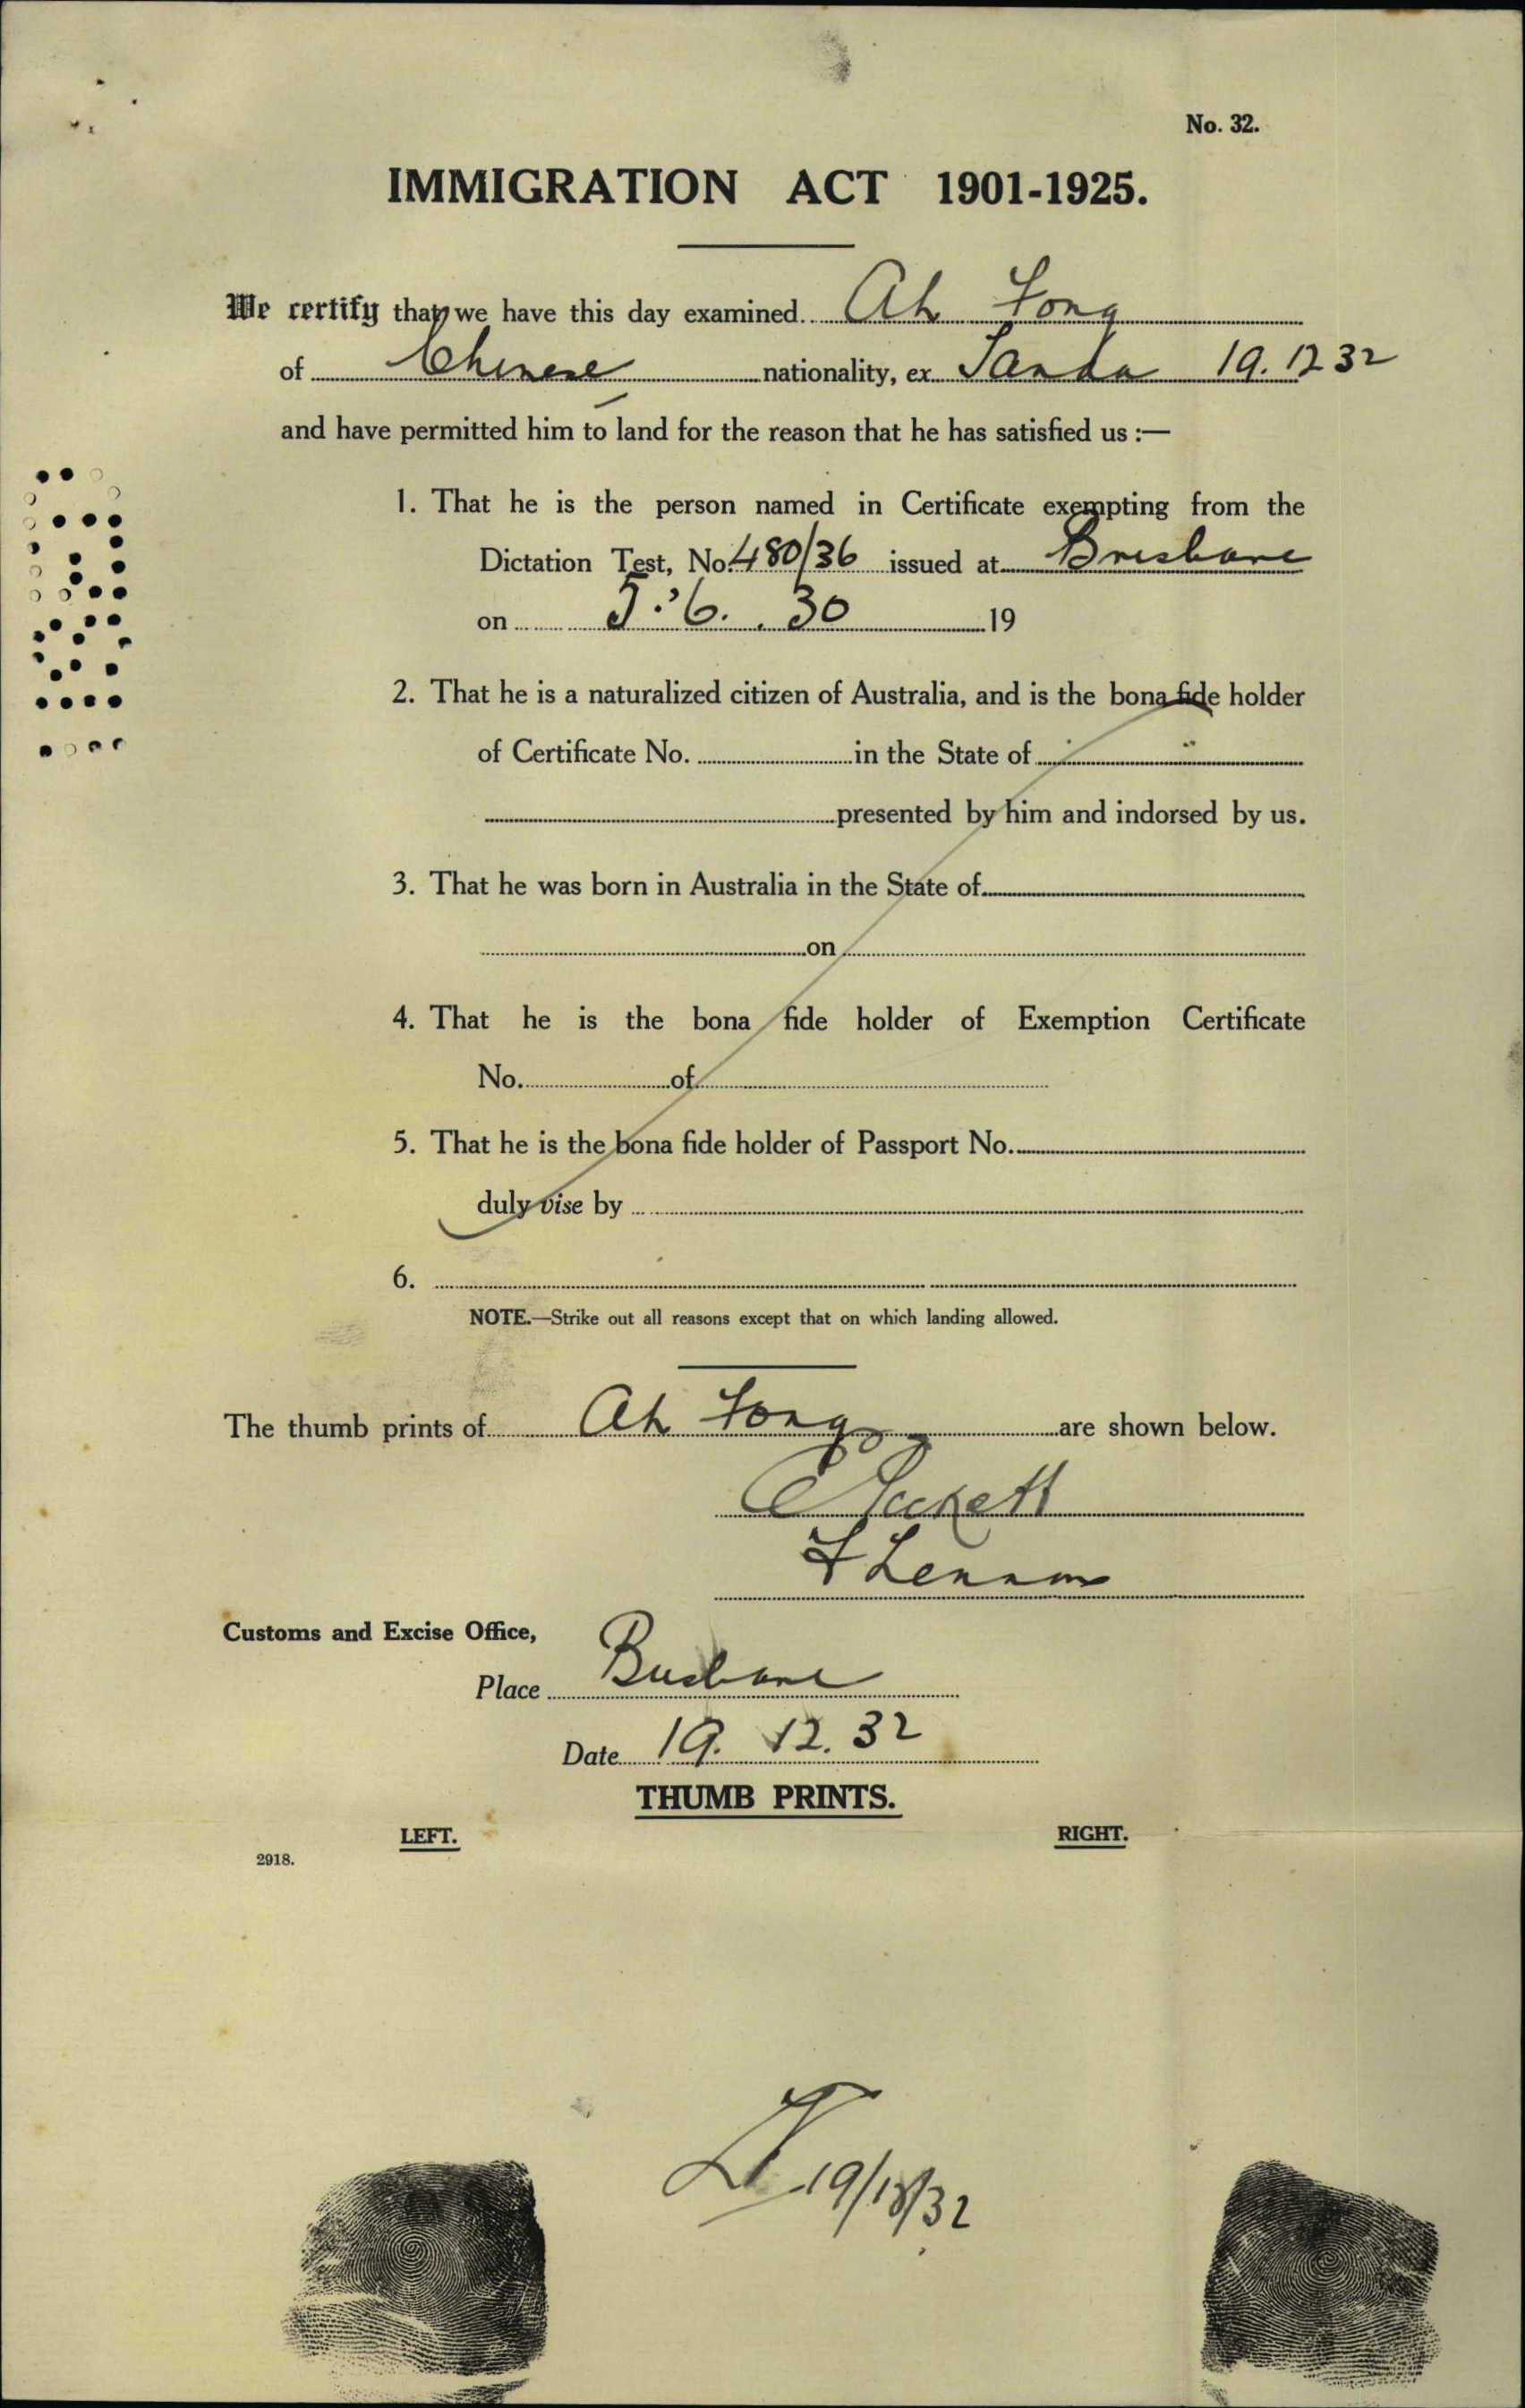 No. 32.
IMMIGRATION ACT 1901-1925.
We certify that we have this day examined Ah Fong
of Chinese nationality, ex Tanda 19.12 32
and have permitted him to land for the reason that he has satisfied us :—
1. That he is the person named in Certificate exempting from the
Dictation Test, No. 480/36 issued at Brisbane
on 5.6.30 19
2. That he is a naturalized citizen of Australia, and is the bona fide holder
of Certificate No. in the State of
presented by him and indorsed by us.
3. That he was born in Australia in the State of
on
4. That he is the bona fide holder of Exemption Certificate
No. of
5. That he is the bona fide holder of Passport No.
duly vise by
6.
NOTE.—Strike out all reasons except that on which landing allowed.
The thumb prints of Ah Fong are shown below.
F Lennon
Customs and Excise Office,
Place Brisbane
Date 19. 12. 32
THUMB PRINTS.
LEFT. RIGHT.
2918.
19/12/32